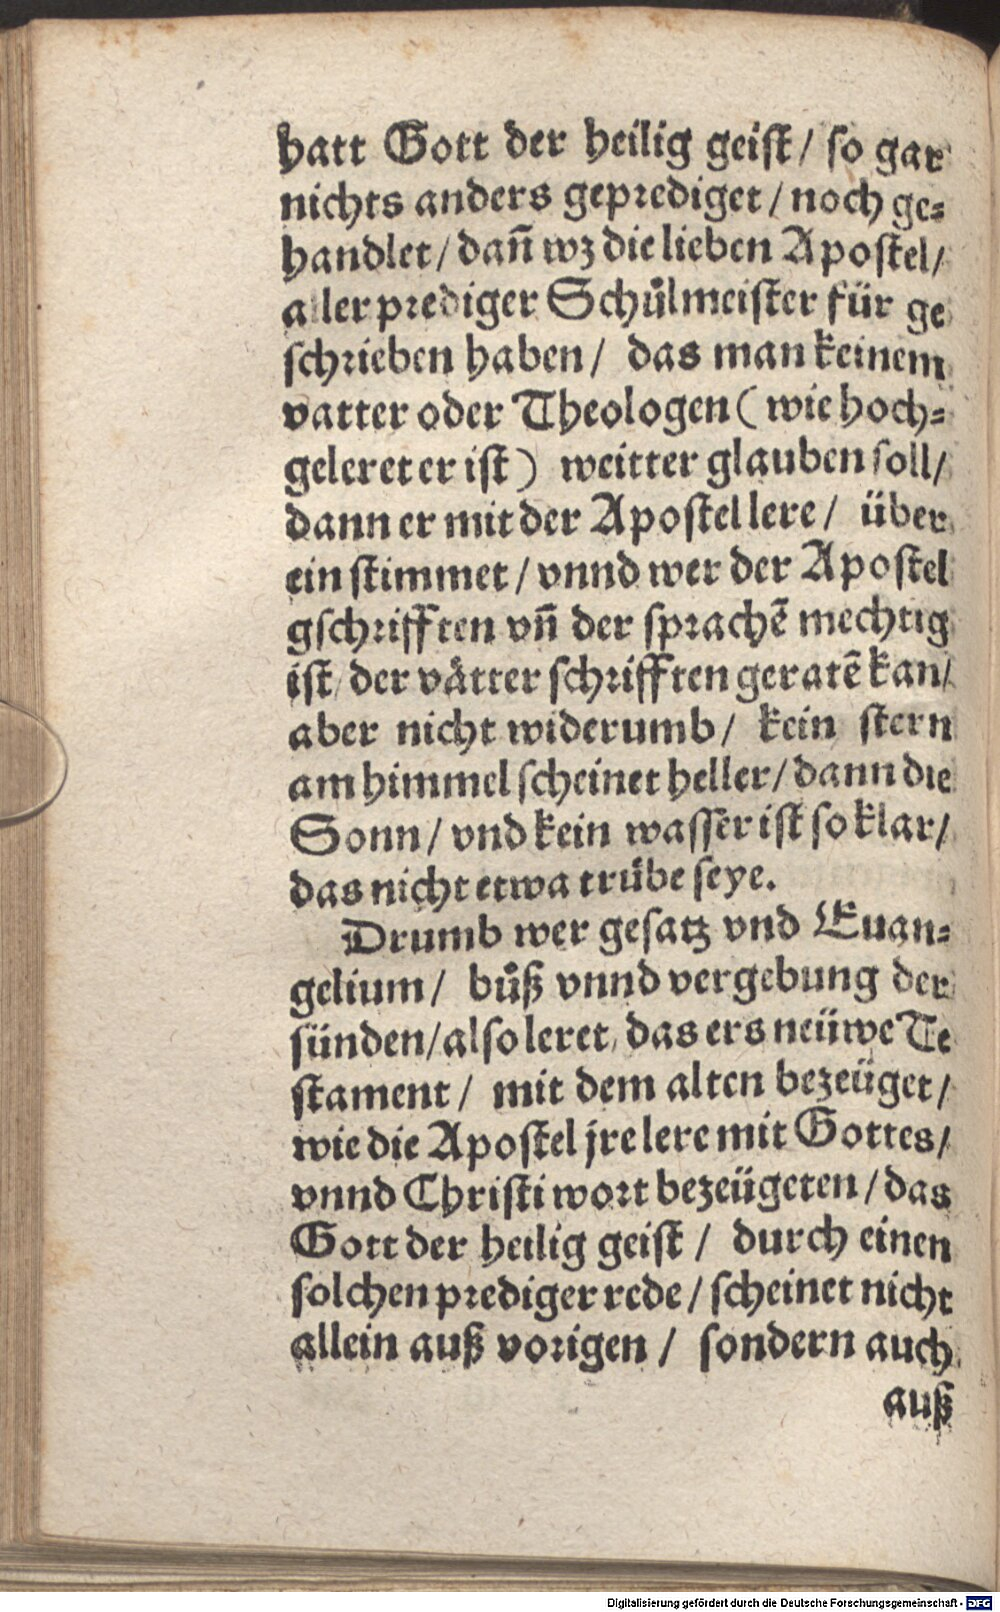 hatt Gott der heilig geist / so gar
nichts anders geprediget / noch ge=
handlet / dañ wz die lieben Apostel /
aller prediger Schůlmeister für ge
schrieben haben / das man keinem
vatter oder Theologen ( wie hoch=
geleret er ist ) weitter glauben soll /
dann er mit der Apostel lere / über
ein stimmet / vnnd wer der Apostel
gschrifften vñ der sprachẽ mechtig
ist / der vätter schrifften geratẽ kan /
aber nicht widerumb / kein stern
am himmel scheinet heller / dann die
Sonn / vnd kein wasser ist so klar /
das nicht etwa trübe seye.
Drumb wer gesatz vnd Euan=
gelium / bůß vnnd vergebung der
sünden / also leret / das ers neüwe Te
stament / mit dem alten bezeüget /
wie die Apostel jre lere mit Gottes /
vnnd Christi wort bezeügeten / das
Gott der heilig geist / durch einen
solchen prediger rede / scheinet nicht
allein auß vorigen / sondern auch
auß
Digitalisierung gefördert durch die Deutsche Forschungsgemeinschaft - DFG